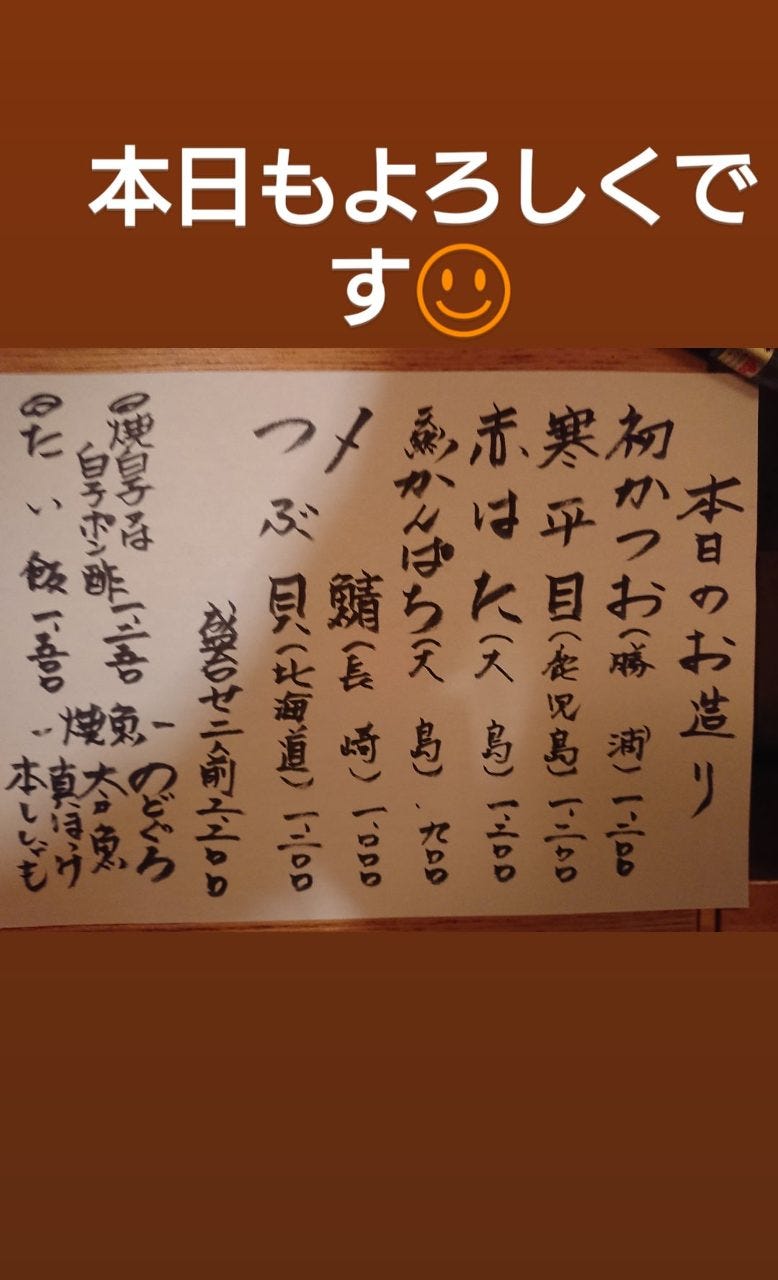 本日もよろしくで
す
本日のお造り
初かつお(勝浦)一、二〇〇
寒平目(鹿児島)一、二〇〇
赤はた(大島)一、二〇〇
かんぱち(大島)、九〇〇
〆鯖(長崎)一、〇〇〇
つぶ貝(北海道)一、二〇〇
盛合せ二人前二、二〇〇
焼白子又は
白子ポン酢一、二五〇
たい飯一、五五〇
焼魚
のどぐろ
真ほっけ
本ししゃも